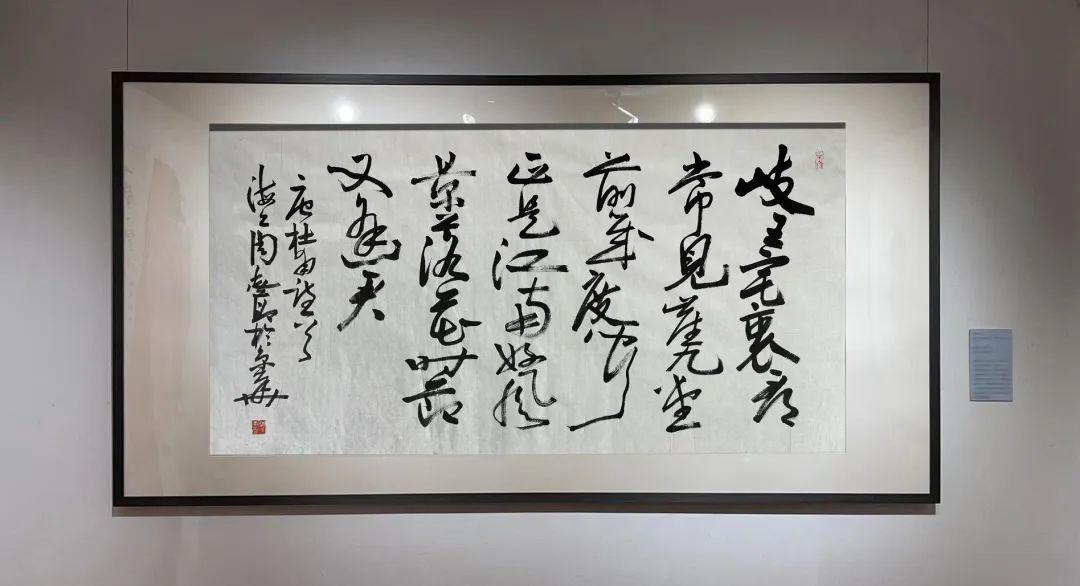 岐王宅裏尋
常見崔九堂
前幾度聞
正是江南好風
景落花時節
又逢君
唐杜甫詩
海上周